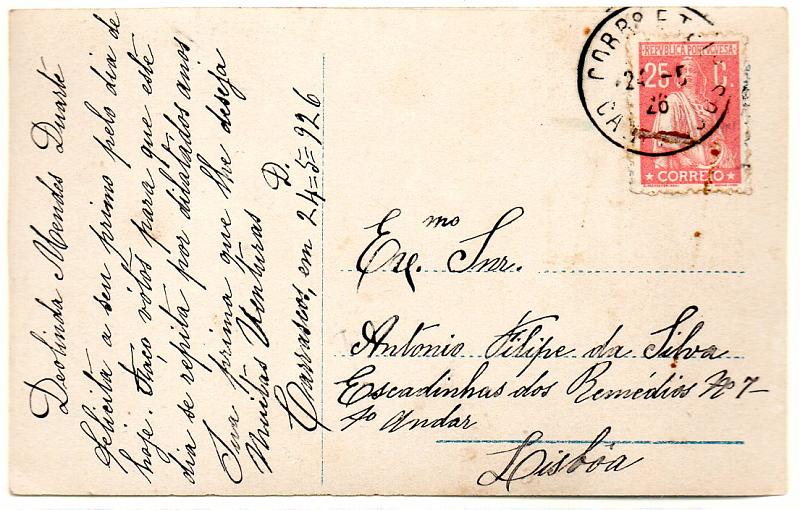 Deolinda Mendes Duarte
felicita a seu primo pelo dia de
hoje. Faço vótos para que este
dia se repita por dilatados anos
Sua prima que lhe deseja
Muitas Venturas D.
Carrascos, em 24=5=926
CORREIO
24 -5
26
CA
REPUBLICA PORTUGUESA
25 C.
CORREIO
Exº. mo Snr.
António Filipe da Silva
Escadinhas dos Remédios Nº 7-
Andar
Lisbôa